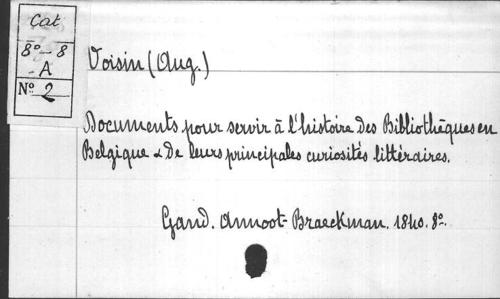 Cat
8° - 8
- A
N° 2
Voisin (Aug.)
Documents pour servir à l'histoire des Bibliothèques en
Belgique & de leurs principales curiosités littéraires.
Gand. Annoot-Braeckman. 1840. 8°.